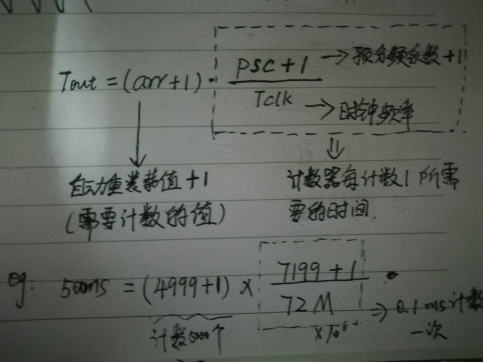 Tout = (arr+1) · psc+1 / Tclk
→预分频系数+1
→时钟频率
自动重装载值+1
(需要计数的值)
计数器每计数1所需
要的时间.
eg: 500ms = (4999+1) × 7199+1 / 72M
×10⁶
⇒ 0.1ms计数
一次
计数5000个